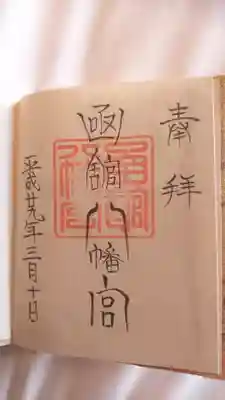 奉拝
函館八幡宮
平成廿九年三月十日